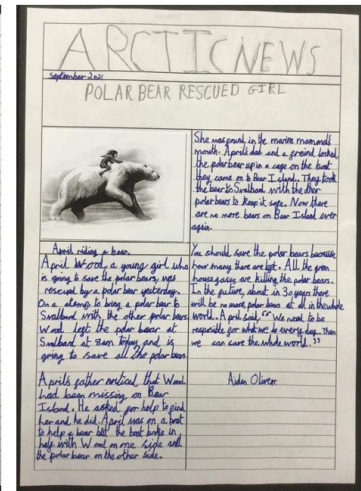 ARCTIC NEWS
September 2021
POLAR BEAR RESCUED GIRL
April riding a bear.
April Wood, a young girl who
is going to save the polar bears, was
rescued by a polar bear yesterday.
On a atemp to bring a polar bear to
Svalbard with the other polar bears
Wood left the polar bear at
Svalbard at 8am today and is
going to save all the polar bears
April's father noticed that Wood
had been missing on Bear
Island. He asked for help to find
her and he did. April was on a boat
to help a bear but the boat broke in
half with Wood on one side and
the polar bear on the other side.
She was found in the marine mammals
mouth. April's dad and a friend locked
the polar bear up in a cage on the boat
they came on to Bear Island. They took
the bear to Svalbard with the other
polar bears to keep it safe. Now there
are no more bears on Bear Island ever
again.
You should save the polar bears because
how many there are left. All the green
houses gases are killing the polar bears.
In the future, about in 30 years there
will be no more polar bears at all in the whole
world. April said, "We need to be
responsible for what we do every day. Then
we can save the whole world."
Aiden Oliver